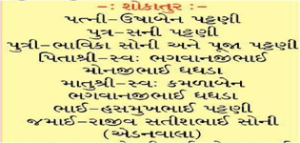 -: શોકાતુર :-
પત્ની-ઉષાબેન પટ્ટણી
પુત્ર-સની પટ્ટણી
પુત્રી-ભાવિકા સોની અને પૂજા પટ્ટણી
પિતાશ્રી-સ્વઃ ભગવાનજીભાઈ
મોનજીભાઈ ધધડા
માતુશ્રી-સ્વઃ કમળાબેન
ભગવાનજીભાઈ ધધડા
ભાઈ-હસમુખભાઈ પટ્ટણી
જમાઈ-રાજીવ સતીશભાઈ સોની
(એડનવાલા)